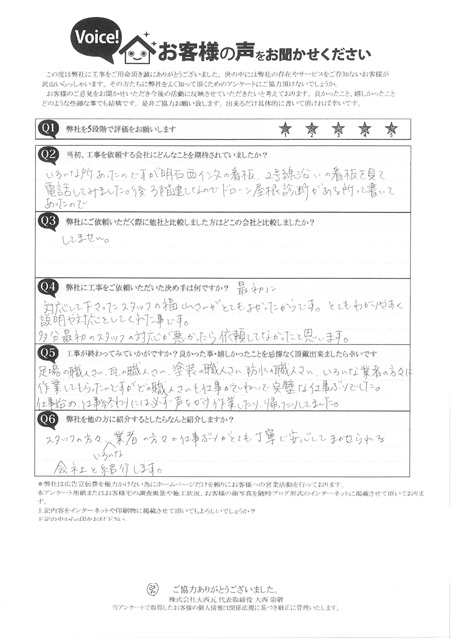 Voice!
お客様の声をお聞かせください
この度は弊社に工事をご用命頂き誠にありがとうございました。世の中には弊社の存在やサービスをご存知ないお客様が
沢山いらっしゃいます。その方たちに弊社をよく知って頂くためのアンケートにご協力頂けないでしょうか。
お客様のご意見をお聞かせいただき今後の活動に反映させていただきたいと考えております。良かったこと、嬉しかったこと
どのような些細な事でも結構です。是非ご協力お願い致します。出来るだけ具体的に書いて頂ければ幸いです。
Q1 弊社を5段階で評価をお願いします
1 2 3 4 5
Q2 当初、工事を依頼する会社にどんなことを期待されていましたか?
いろいろな所あったのですが明石西インターの看板、2号線沿いの看板を見て
電話してみました。後3階建てなのでドローン屋根診断がある所って書いて
あったので
Q3 弊社にご依頼いただく際に他社と比較しました方はどこの会社と比較したか?
してません。
Q4 弊社に工事をご依頼いただいた決め手は何ですか?
最初に
対応して下さったスタッフの福山さんがとてもよかったからです。とてもわかりやすく
説明や対応をしてくれた事です。
多分最初のスタッフの対応が悪かったら依頼してなかったと思います。
Q5 工事が終わってみていかがですか?良かった事・嬉しかったことを忌憚なく頂戴出来ましたら幸いです
足場の職人さん、瓦の職人さん、塗装の職人さん、防水の職人さん、いろいろな業者の方々に
作業してもらったのですがどの職人さんも仕事がていねいで完璧な仕事ぶりでした。
仕事始め、仕事終わりには必ず声をかけ作業したり、帰ったりしてました。
Q6 弊社を他の方に紹介するとしたらなんと紹介しますか?
スタッフの方々、いろいろな業者の方々の仕事ぶりがとても丁寧で安心してまかせられる
会社と紹介します。
*弊社は広告宣伝費を極力かけない為にホームページだけを頼りにお客様への営業活動を行っております。
本アンケート用紙またはお客様宅の調査風景や施工状況、お客様の顔写真を随時ブログ形式のインターネットに掲載させて頂いております。
上記内容をインターネットや印刷物に掲載させて頂いてもよろしいでしょうか?
ご協力ありがとうございました。
株式会社大西瓦 代表取締役 大西 崇敬
当アンケートで取得したお客様の個人情報は関係法規に基づき厳正に管理いたします。